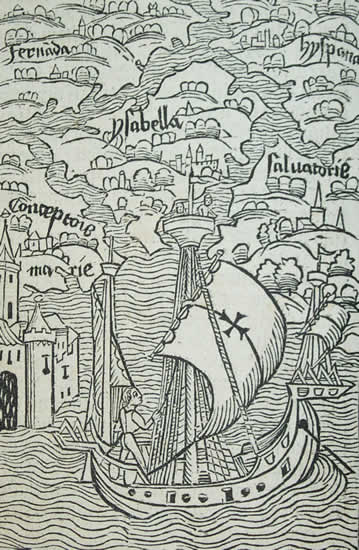 Fernāda
hyspana
ysabella
saluatorie
Conceptoīe
marie